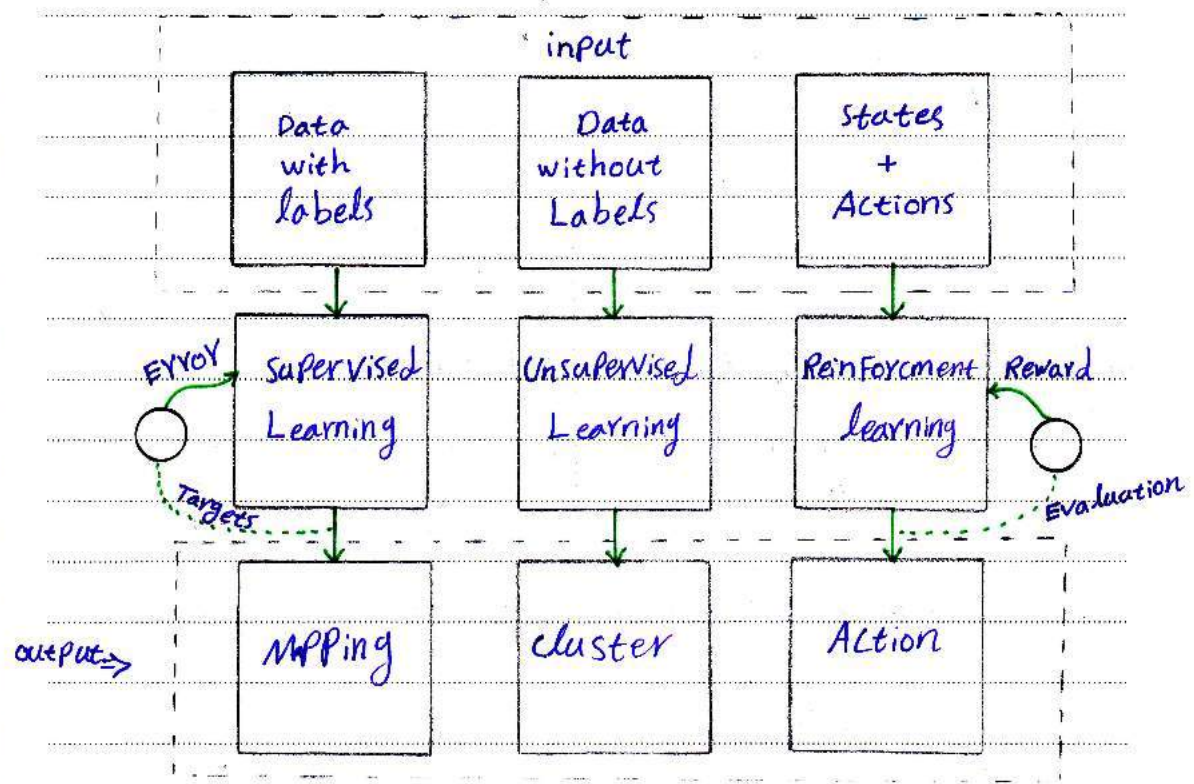 input
Data
with
labels
Data
without
Labels
States
+
Actions
Error
Supervised
Learning
Targets
Unsupervised
Learning
Reinforcment
learning
Reward
Evaluation
output =>
MPPing
cluster
Action